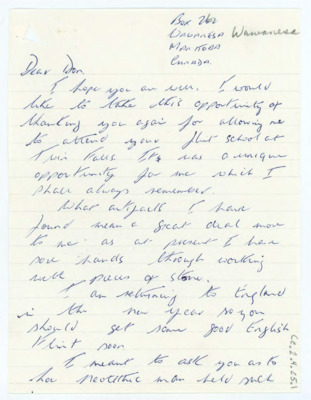 Box 262
WAWANESA Wawanesa
MANITOBA
CANADA.
Dear Don,
I hope you are well. I would
like to take this opportunity of
thanking you again for allowing me
to attend your flint school at
Twin Falls. It was a unique
opportunity for me which I
shall always remember.
What artifacts I have
found mean a great deal more
to me as at present I have
sore hands through working
with pieces of stone.
I am returning to England
in the new year so you
should get some good English
flint soon
I meant to ask you as to
how neolithic man held such